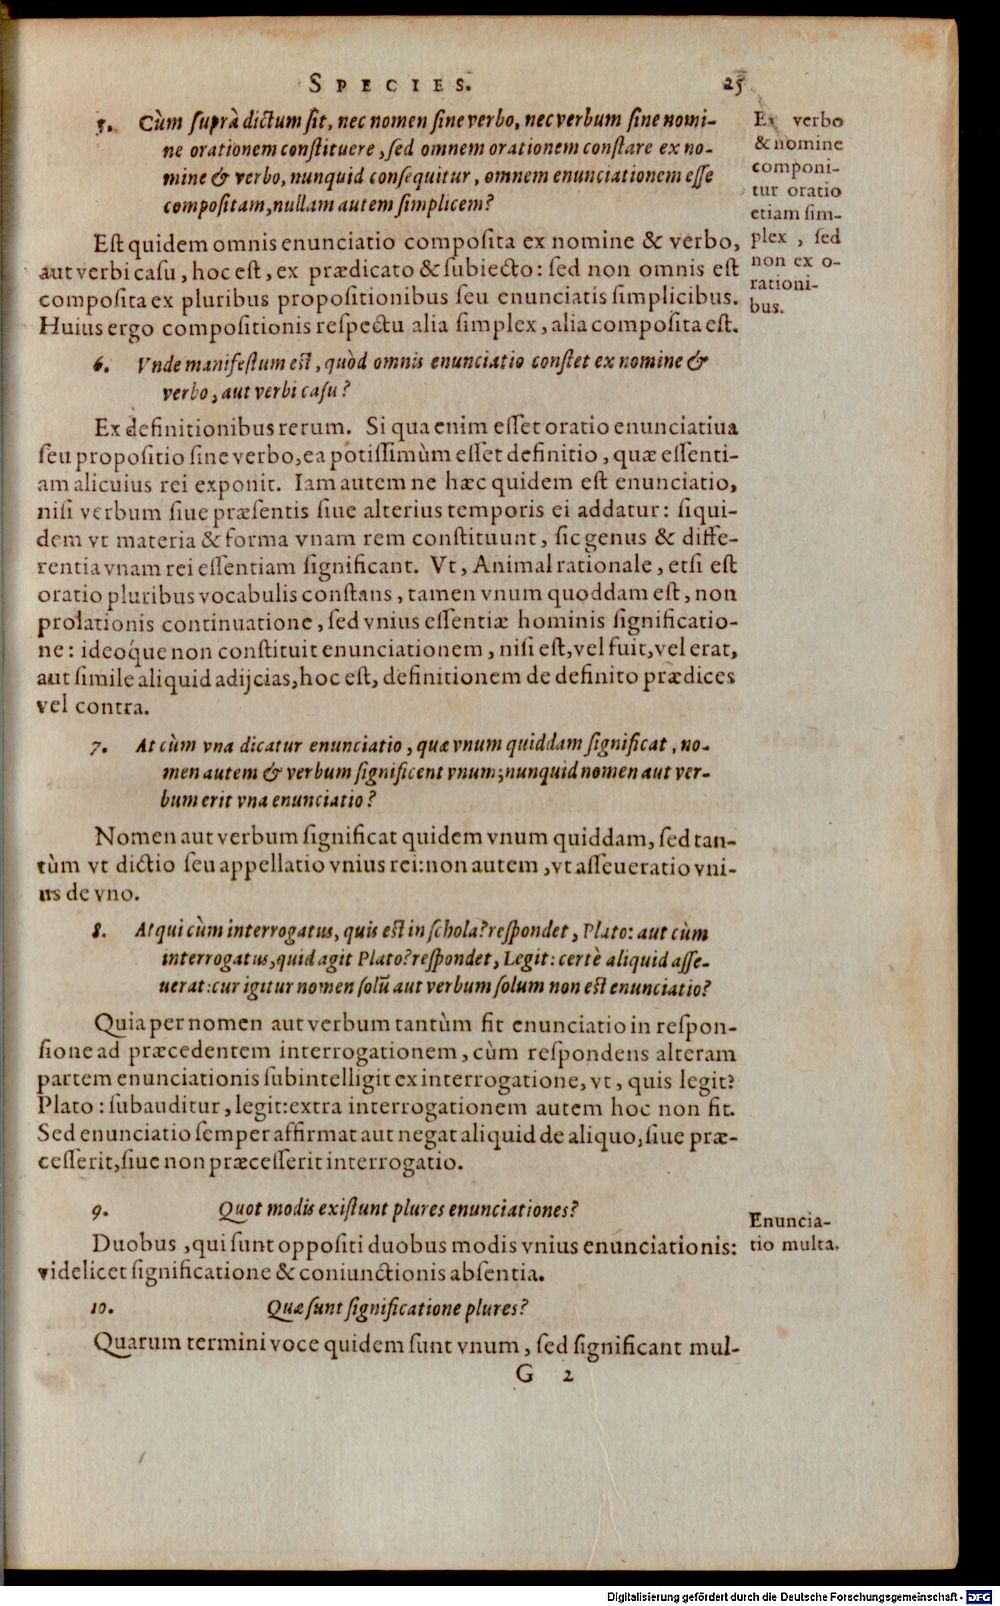 SPECIES. 25
5. Cùm ſuprà dictum ſit, nec nomen ſine verbo, nec verbum ſine nomi-
ne orationem conſtituere, ſed omnem orationem conſtare ex no-
mine & verbo, nunquid conſequitur, omnem enunciationem eſſe
compoſitam, nullam autem ſimplicem?
Ex verbo
& nomine
componi-
tur oratio
etiam ſim-
plex, ſed
non ex o-
rationi-
bus.
Eſt quidem omnis enunciatio compoſita ex nomine & verbo,
aut verbi caſu, hoc eſt, ex prædicato & ſubiecto: ſed non omnis eſt
compoſita ex pluribus propoſitionibus ſeu enunciatis ſimplicibus.
Huius ergo compoſitionis reſpectu alia ſimplex, alia compoſita eſt.
6. Vnde manifeſtum eſt, quòd omnis enunciatio conſtet ex nomine &
verbo, aut verbi caſu?
Ex definitionibus rerum. Si qua enim eſſet oratio enunciatiua
ſeu propoſitio ſine verbo, ea potiſſimùm eſſet definitio, quæ eſſenti-
am alicuius rei exponit. Iam autem ne hæc quidem eſt enunciatio,
niſi verbum ſiue præſentis ſiue alterius temporis ei addatur: ſiqui-
dem vt materia & forma vnam rem conſtituunt, ſic genus & diffe-
rentia vnam rei eſſentiam ſignificant. Vt, Animal rationale, etſi eſt
oratio pluribus vocabulis conſtans, tamen vnum quoddam eſt, non
prolationis continuatione, ſed vnius eſſentiæ hominis ſignificatio-
ne: ideoq́ue non conſtituit enunciationem, niſi eſt, vel fuit, vel erat,
aut ſimile aliquid adijcias, hoc eſt, definitionem de definito prædices
vel contra.
7. At cùm vna dicatur enunciatio, quæ vnum quiddam ſignificat, no-
men autem & verbum ſignificent vnum; nunquid nomen aut ver-
bum erit vna enunciatio?
Nomen aut verbum ſignificat quidem vnum quiddam, ſed tan-
tùm vt dictio ſeu appellatio vnius rei: non autem, vt aſſeueratio vni-
us de vno.
8. Atqui cùm interrogatus, quis eſt in ſchola? reſpondet, Plato: aut cùm
interrogatus, quid agit Plato? reſpondet, Legit: certè aliquid aſſe-
uerat: cur igitur nomen ſolũ aut verbum ſolum non eſt enunciatio?
Quia per nomen aut verbum tantùm fit enunciatio in reſpon-
ſione ad præcedentem interrogationem, cùm reſpondens alteram
partem enunciationis ſubintelligit ex interrogatione, vt, quis legit?
Plato: ſubauditur, legit: extra interrogationem autem hoc non fit.
Sed enunciatio ſemper affirmat aut negat aliquid de aliquo, ſiue præ-
ceſſerit, ſiue non præceſſerit interrogatio.
9. Quot modis exiſtunt plures enunciationes?
Enuncia-
tio multa.
Duobus, qui ſunt oppoſiti duobus modis vnius enunciationis:
videlicet ſignificatione & coniunctionis abſentia.
10. Quæ ſunt ſignificatione plures?
Quarum termini voce quidem ſunt vnum, ſed ſignificant mul-
G 2
Digitalisierung gefördert durch die Deutsche Forschungsgemeinschaft - DFG